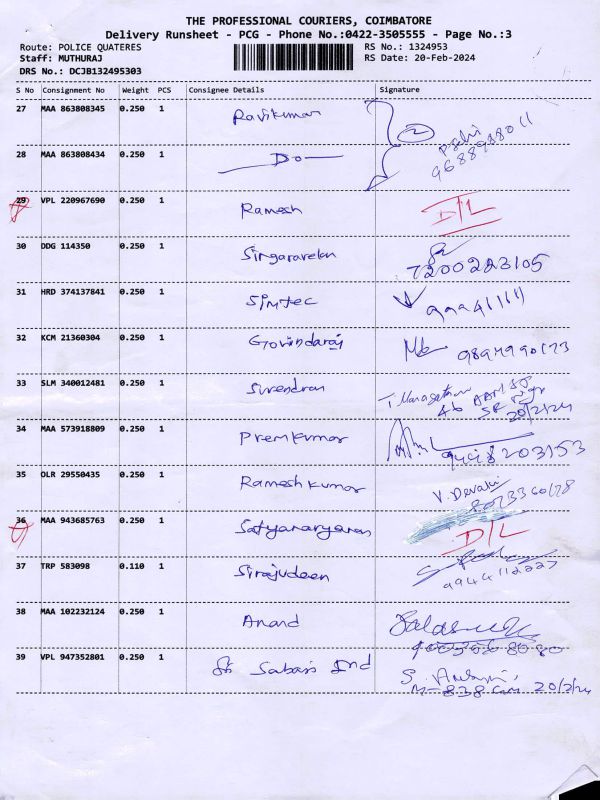 THE PROFESSIONAL COURIERS, COIMBATORE
Delivery Runsheet - PCG - Phone No.:0422-3505555 - Page No.:3
Route: POLICE QUATERES RS No.: 1324953
Staff: MUTHURAJ RS Date: 20-Feb-2024
DRS No.: DCJB132495303
S No Consignment No Weight PCS Consignee Details Signature
27 MAA 863808345 0.250 1 Ravikumar
28 MAA 863808434 0.250 1 Do 2
29 VPL 220967690 0.250 1 Ramesh D/L
30 DDG 114350 0.250 1 Singaravelan 7200223105
31 HRD 374137841 0.250 1 Simtec
32 KCM 21360304 0.250 1 Govindaraj
33 SLM 340012481 0.250 1 Surendran 20/2/24
34 MAA 573918809 0.250 1 Premkumar
35 OLR 29550435 0.250 1 Ramesh kumar V. Devaki
36 MAA 943685763 0.250 1 Satyanaryanan D/L
37 TRP 583098 0.110 1 Sirajudeen 9944112227
38 MAA 102232124 0.250 1 Anand
39 VPL 947352801 0.250 1 Sri Sabari Ind 20/2/24